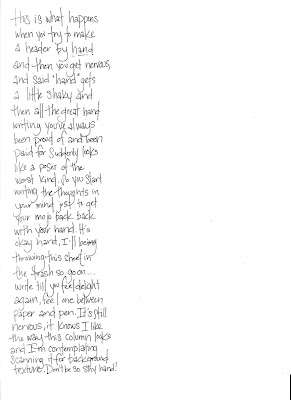 this is what happens
when you try to make
a header by hand
and then you get nervous,
and said "hand" gets
a little shaky and
then all the great hand
writing you've always
been proud of and been
paid for suddenly looks
like a poser of the
worst kind. So you start
writing the thoughts in
your mind just to get
your mojo back back
with your hand. It's
okay hand, I'll being
throwing this sheet in
the trash so go on...
write till you feel delight
again, feel one between
paper and pen. It's still
nervous, it knows I like
the way this column looks
and I'm contemplating
scanning it for background
texture. Don't be so shy hand!